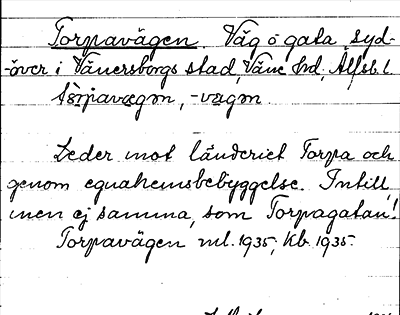 Torpavägen. Väg o gata syd-
över i Vänersborgs stad, Väne hd, Älfsb. l.
tòrpavægən, -vægən.
Leder mot länderiet Torpa och
genom egnahemsbebyggelse. Intill,
men ej samma, som Torpagatan!
Torpavägen ml. 1935, kb. 1935.